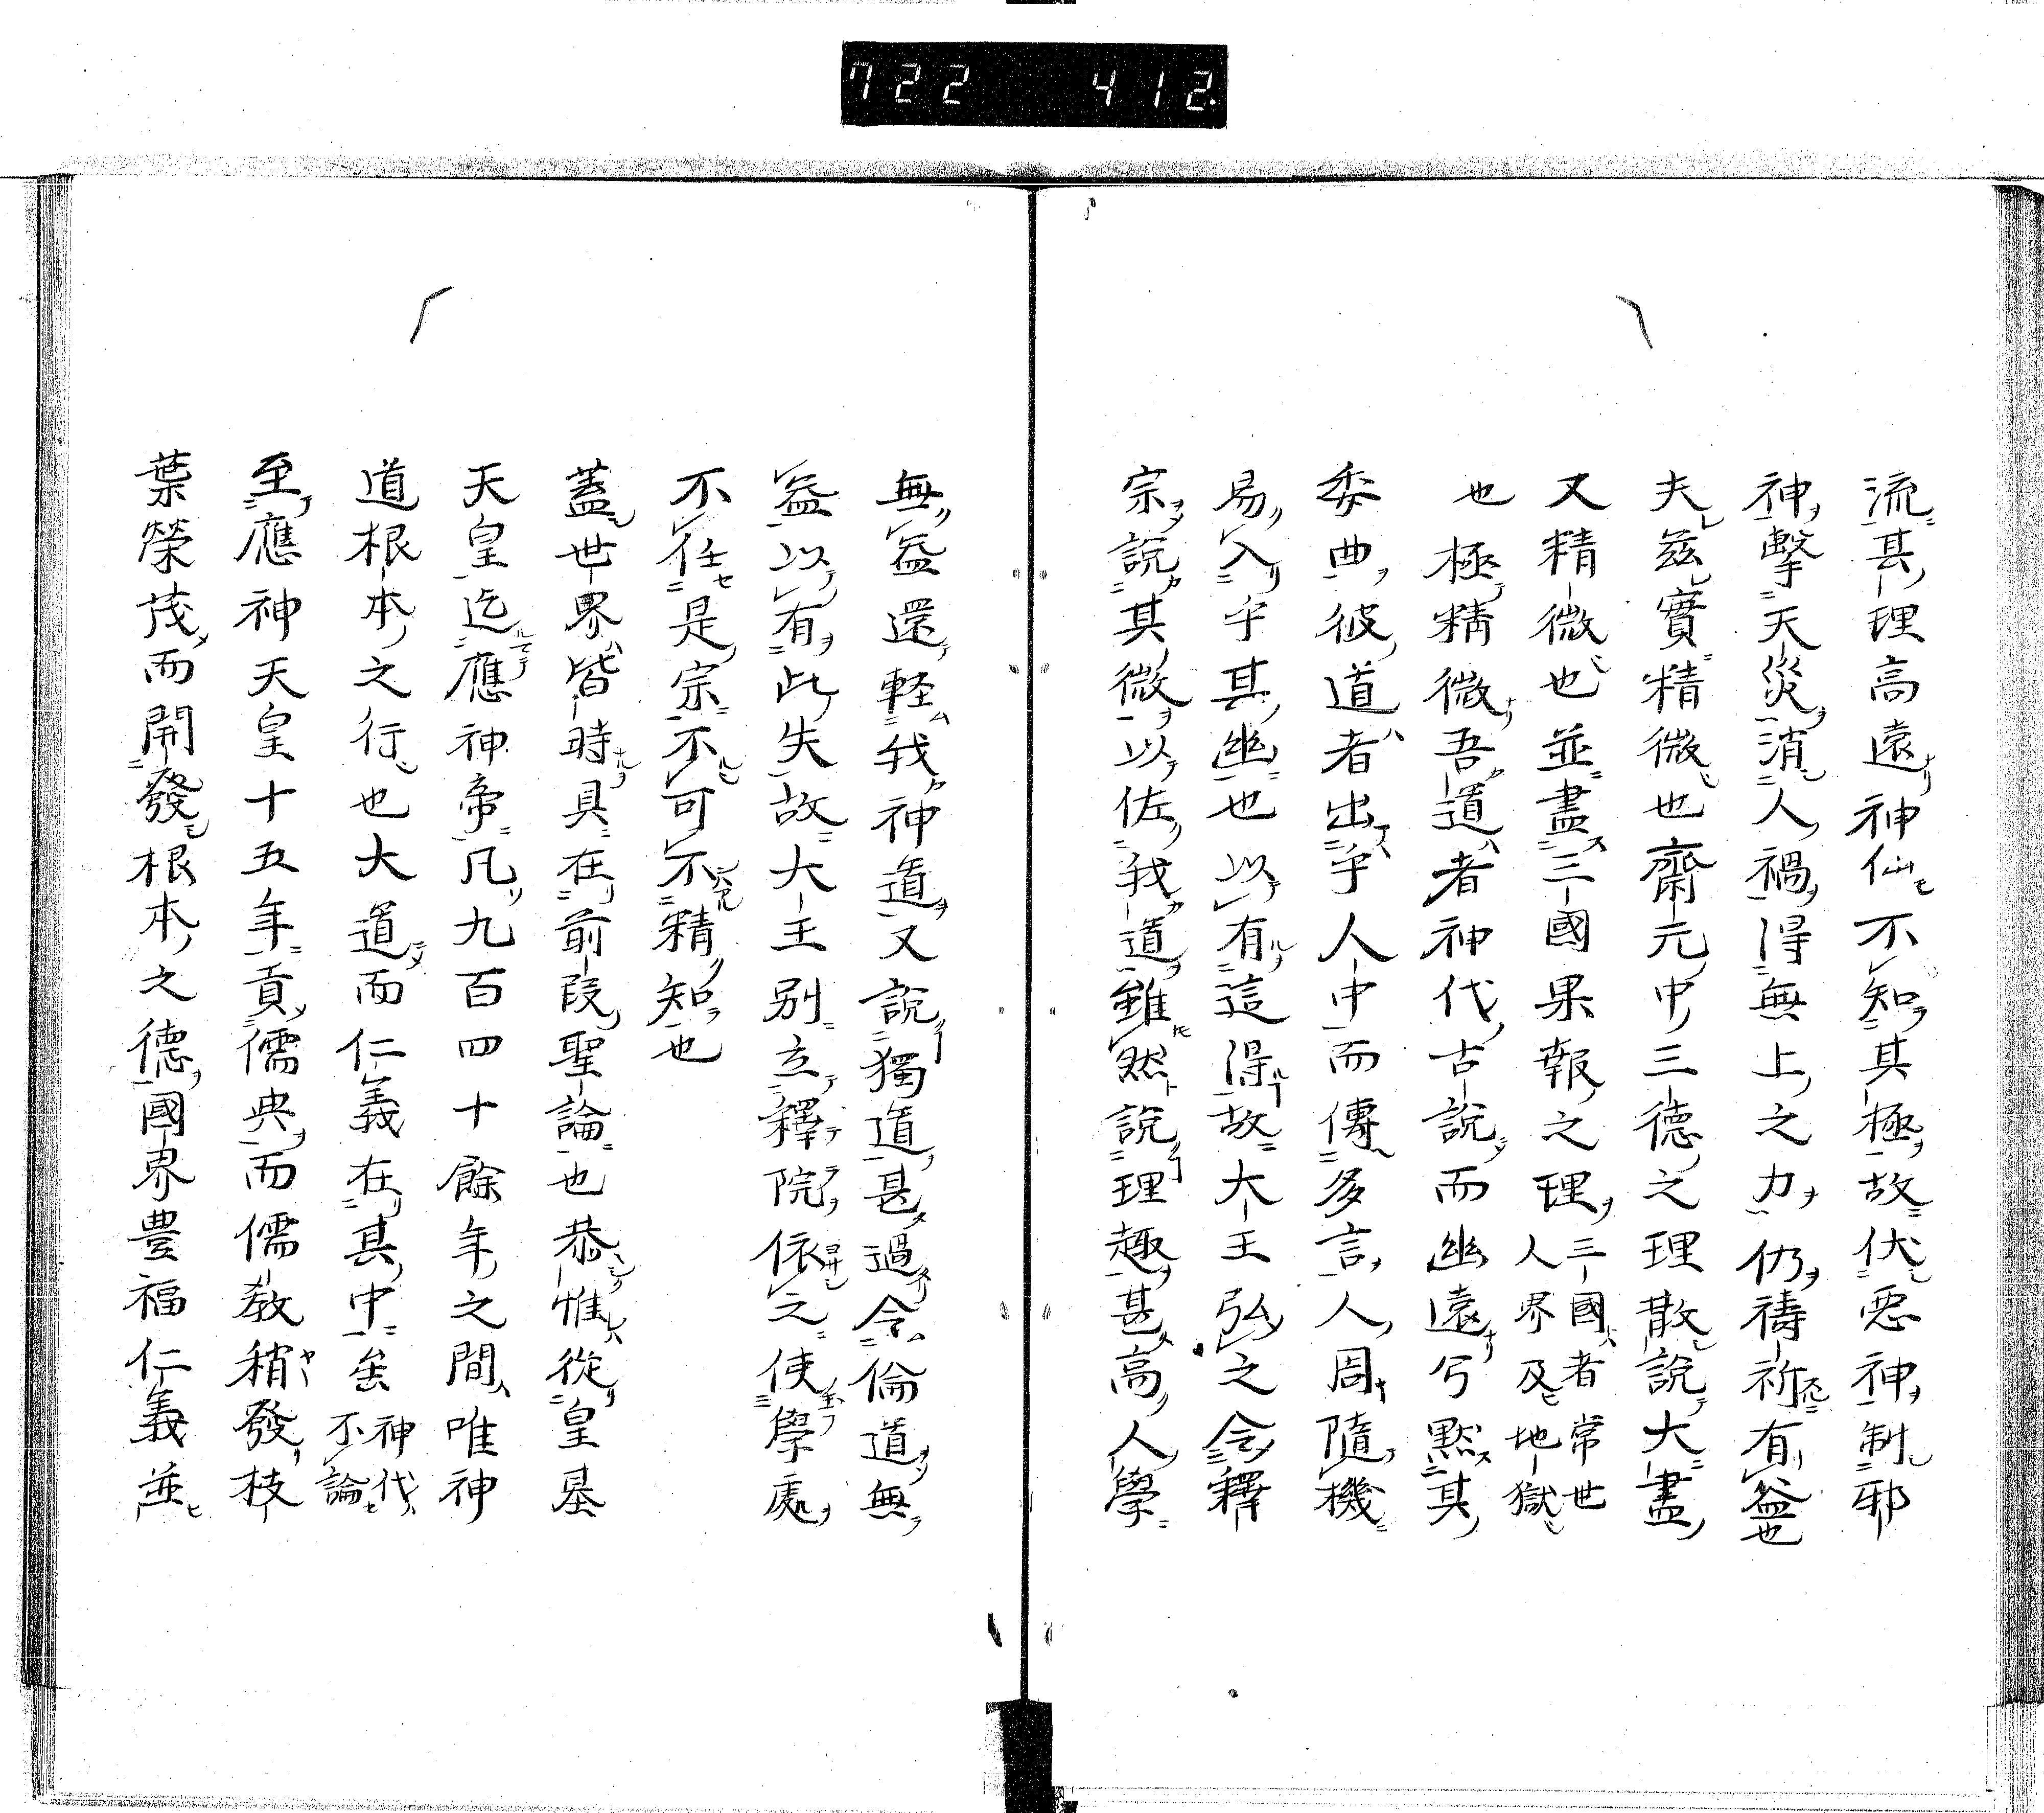 722 412
流其理高遠神仙不知其極故伏惡神制邪
神擊天災消人禍得無上之力仍禱祈有益也
夫茲實精微也齋元中三德之理散說大盡
又精微也並盡三國果報之理三國者常世人界及地獄
也極精微吾道者神代古說而幽遠兮默其
委曲彼道者出乎人中而傳多言人周隨機
易入乎其幽也以有這得故大王弘之令釋
宗說其微以佐我道雖然說理趣甚高人學
無益還輕我神道又說獨道甚過令倫道無
益以有此失故大王別立釋院依之使學處
不任是宗不可不精知也
蓋世界皆時具在前段聖論也恭惟從皇基
天皇迄應神帝凡九百四十餘年之間唯神
道根本之行也大道而仁義在其中矣神代不論
至應神天皇十五年貢儒典而儒教稍發枝
葉榮茂而開發根本之德國界豊福仁義並